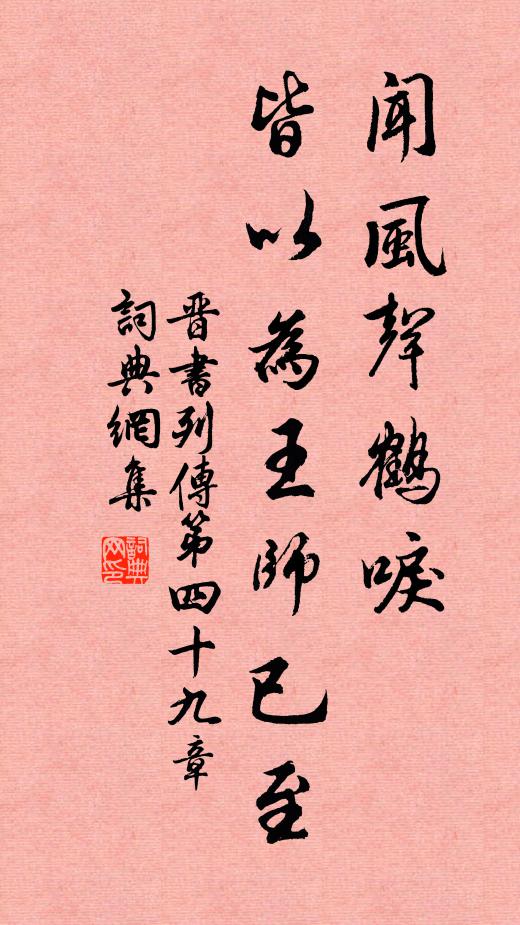 聞風聲鶴唳
皆以為王師已至
晉書列傳第四十九章
詞典網集
詞典网印